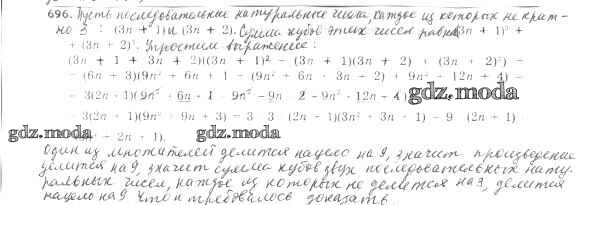 696. Пусть последовательные натуральные числа, каждое из которых не крат-
но 3 : (3n + 1) и (3n + 2). Сумма кубов этих чисел равна (3n + 1)³ +
+ (3n + 2)³. Упростим выражение:
(3n + 1 + 3n + 2)((3n + 1)² − (3n + 1)(3n + 2) + (3n + 2)²) =
= (6n + 3)(9n² + 6n + 1 − (9n² + 6n + 3n + 2) + 9n² + 12n + 4) =
= 3(2n + 1)(9n² + 6n + 1 − 9n² − 9n − 2 + 9n² + 12n + 4)
gdz.moda
3(2n + 1)(9n² + 9n + 3) = 3 · 3 (2n + 1)(3n² + 3n + 1) = 9 (2n + 1)
gdz.moda gdz.moda
Один из множителей делится нацело на 9, значит произведение
делится на 9, значит сумма кубов двух последовательных нату-
ральных чисел, каждое из которых не делится на 3, делится
нацело на 9. Что и требовалось доказать.